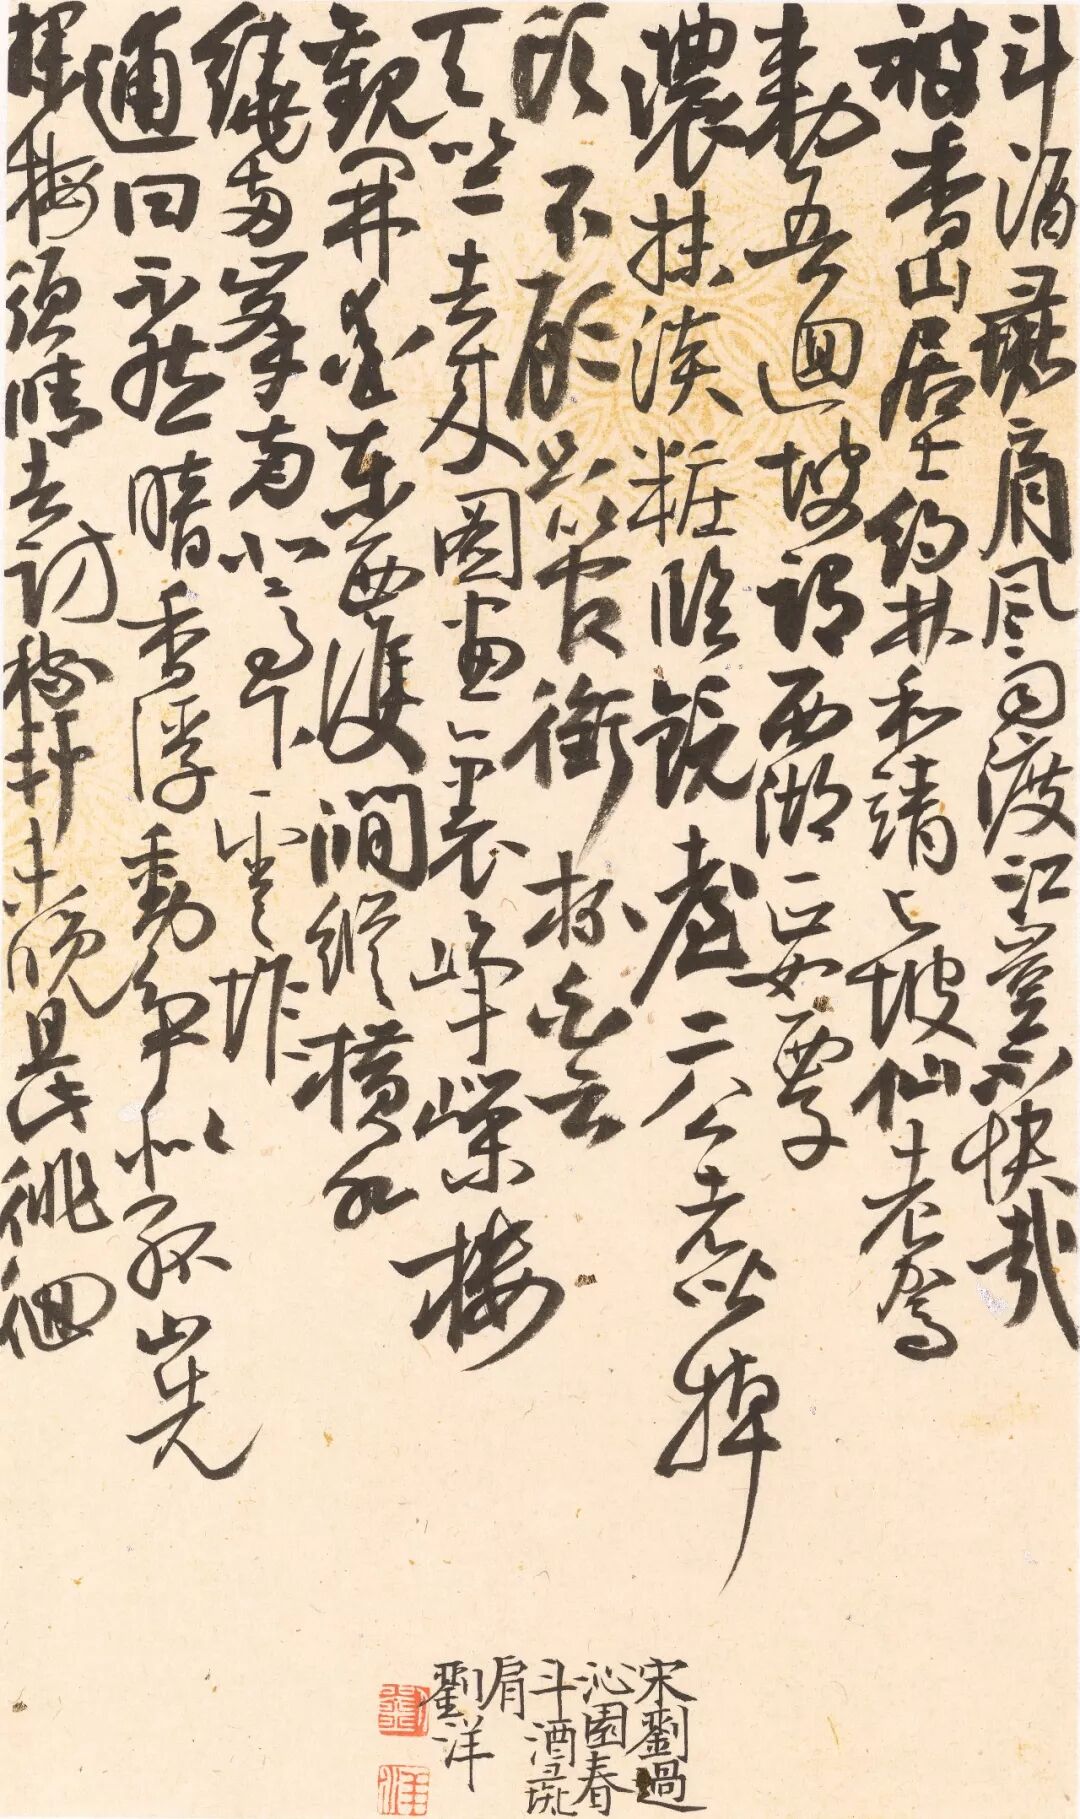 斗酒彘肩風雨渡江豈不快哉
被香山居士約林和靖与坡仙老駕
勒吾迴坡謂西湖正如西子
濃抹淡粧臨鏡臺二公者皆掉
頭不顧只管銜杯白云
天竺去來圖画裏崢嶸樓
觀開愛東西雙澗縱橫水
繞兩峯南北高下雲堆
逋曰不然暗香浮動争似孤山先
探梅須晴去訪稼軒未晚且徘徊
宋劉過
沁園春
斗酒彘
肩
劉洋